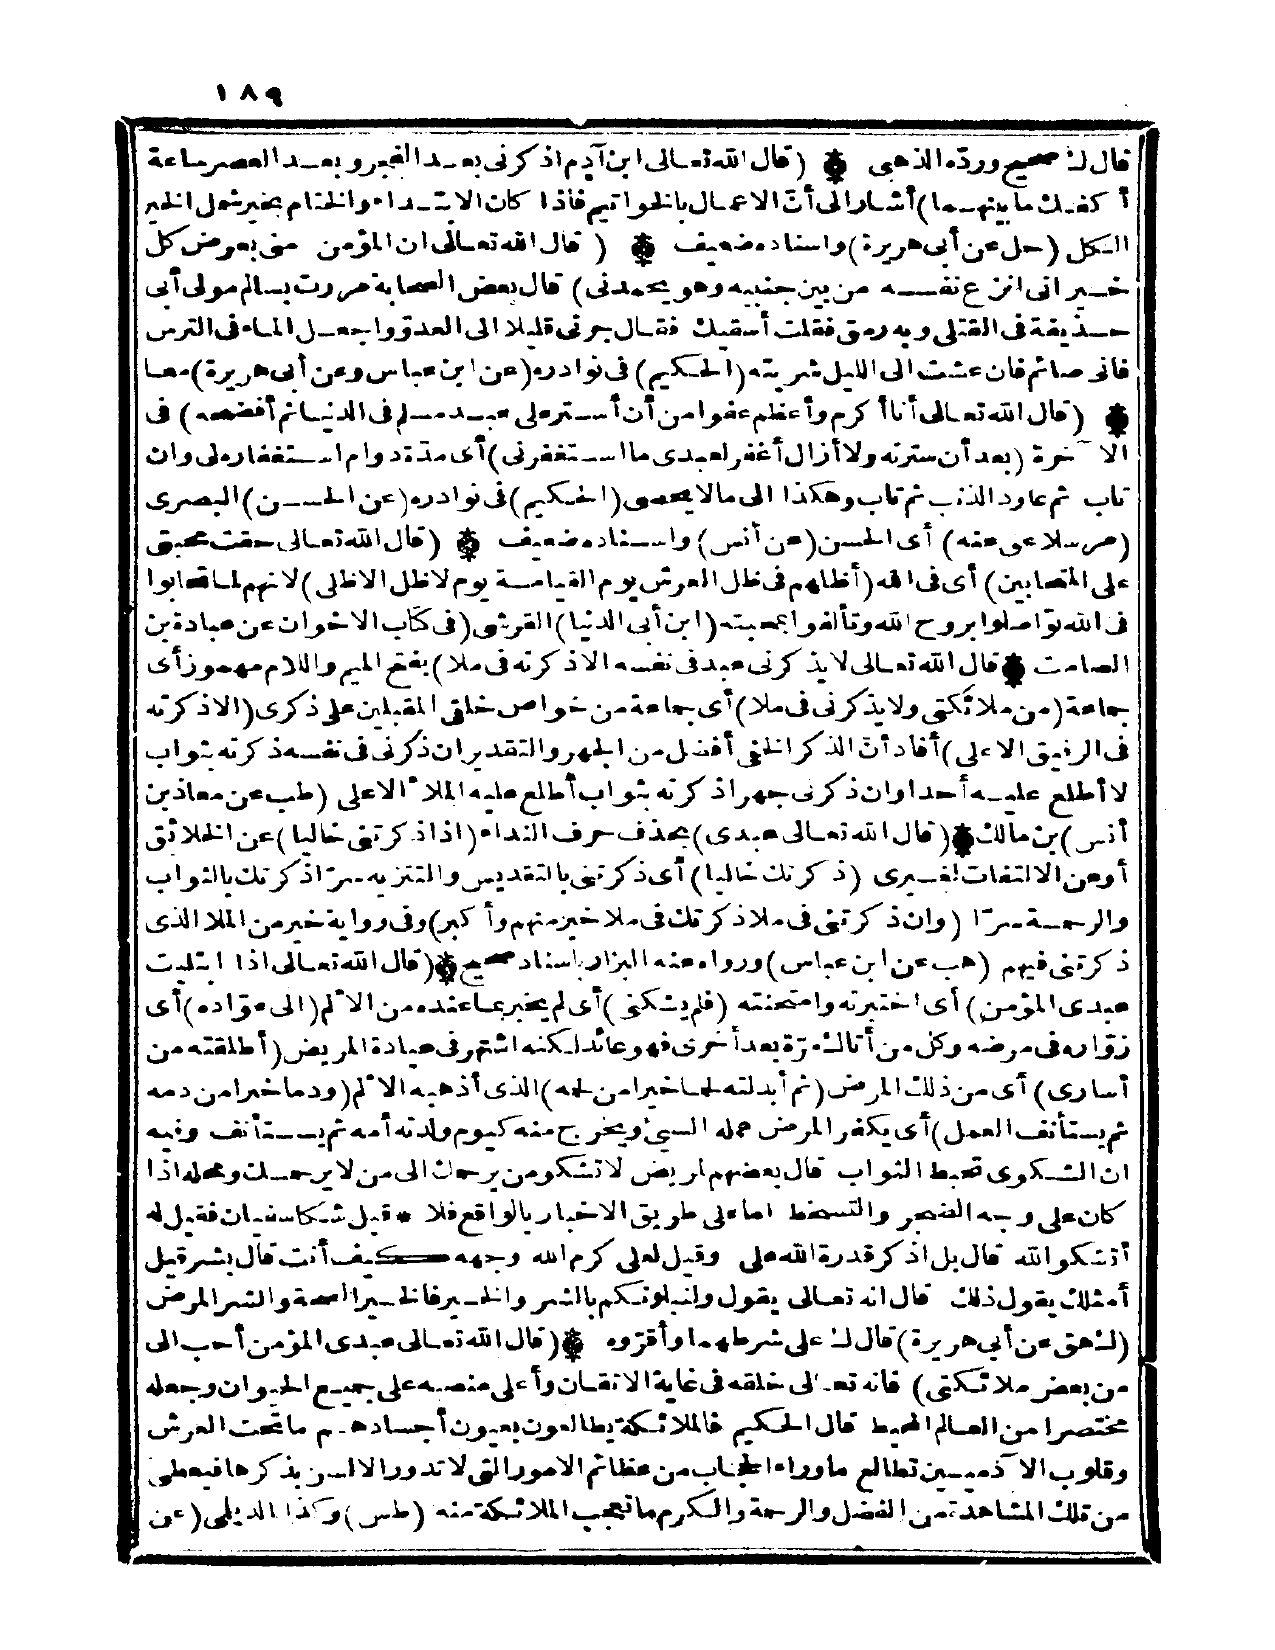 ١٨٩
قال ك صحيح ورده الذهبى (قال الله تعالى ابن آدم اذكرنى بعد الفجر وبعد العصر ساعة
أكفك ما بينهما) أشار الى أنّ الاعمال بالخواتيم فاذا كان الابتداء والختام بخير شمل الخير
الكل (حل عن أبى هريرة) واسناده ضعيف (قال الله تعالى ان المؤمن منى بعرض كل
خير انى انزع نفسه من بين جنبيه وهو يحمدنى) قال بعض الصحابة مررت بسالم مولى أبى
حذيفة فى القتلى وبه رمق فقلت أسقيك فقال جرنى قليلا الى العدو واجعل الماء فى الترس
فانى صائم فان عشت الى الليل شربته (الحكيم) فى نوادره (عن ابن عباس وعن أبى هريرة) معا
(قال الله تعالى أنا أكرم وأعظم عفوا من أن أستر على عبد مسلم فى الدنيا ثم أفضحه) فى
الآخرة (بعد أن سترته ولا أزال أغفر لعبدى ما استغفرنى) أى مدّة دوام استغفاره لى وان
تاب ثم عاود الذنب ثم تاب وهكذا الى مالا يحصى (الحكيم) فى نوادره (عن الحسن) البصرى
(مرسلا عق عنه) أى الحسن (عن أنس) واسناده ضعيف (قال الله تعالى حقت محبتى
على المتحابين) أى فى الله (أظلهم فى ظل العرش يوم القيامة يوم لا ظل الا ظلى) لانهم لما تحابوا
فى الله تواصلوا بروح الله وتألفوا بمحبته (ابن أبى الدنيا) القرشى (فى كتاب الاخوان عن عبادة بن
الصامت قال الله تعالى لا يذكرنى عبد فى نفسه الا ذكرته فى ملا) بفتح الميم واللام مهموز أى
جماعة (من ملائكتى ولا يذكرنى فى ملا) أى جماعة من خواص خلقى المقبلين على ذكرى (الا ذكرته
فى الرفيق الاعلى) أفاد أنّ الذكر الخفى أفضل من الجهر والتقدير ان ذكرنى فى نفسه ذكرته بثواب
لا أطلع عليه أحدا وان ذكرنى جهرا ذكرته بثواب أطلع عليه الملأ الاعلى (طب عن معاذ بن
أنس) بن مالك (قال الله تعالى عبدى) بحذف حرف النداء (اذا ذكرتنى خاليا) عن الخلائق
أو عن الالتفات لغيرى (ذكرتك خاليا) أى ذكرتنى بالتقديس والتنزيه سرّا ذكرتك بالثواب
والرحمة سرّا (وان ذكرتنى فى ملا ذكرتك فى ملا خير منهم وأكبر) وفى رواية خير من الملا الذى
ذكرتنى فيهم (هب عن ابن عباس) ورواه عنه البزار باسناد صحيح (قال الله تعالى اذا ابتليت
عبدى المؤمن) أى اختبرته وامتحنته (فلم يشكنى) أى لم يخبر بما عنده من الألم (الى عوّاده) أى
زوّاره فى مرضه وكل من أتاك مرّة بعد أخرى فهو عائد لكنه اشتهر فى عيادة المريض (أطلقته من
أسارى) أى من ذلك المرض (ثم أبدلته لحما خيرا من لحمه) الذى أذهبه الألم (ودما خيرا من دمه
ثم يستأنف العمل) أى يكفر المرض عمله السيئ ويخرج منه كيوم ولدته أمه ثم يستأنف وفيه
ان الشكوى تحبط الثواب قال بعضهم لمريض لا تشكو من يرحمك الى من لا يرحمك ومحله اذا
كان على وجه الضجر والتسخط اما على طريق الاخبار بالواقع فلا * قيل شكا سفيان فقيل له
أتشكو الله قال بل اذكر قدرة الله على وقيل لعلى كرم الله وجهه كيف أنت قال بشر قيل
أمثلك يقول ذلك قال انه تعالى يقول ولنبلونكم بالشر والخير فالخير الصحة والشر المرض
(ك هق عن أبى هريرة) قال ك على شرطهما وأقرّوه (قال الله تعالى عبدى المؤمن أحب الى
من بعض ملائكتى) فانه تعالى خلقه فى غاية الاتقان وأعلى منصبه على جميع الحيوان وجعله
مختصرا من العالم المحيط قال الحكيم فالملائكة يطالعون بعيون أجسادهم ما تحت العرش
وقلوب الآدميين تطالع ما وراء الحجاب من عظائم الامور التى لا تدور الالسن بذكرها فيعطى
من تلك المشاهدة من الفضل والرحمة والكرم ما تعجب الملائكة منه (طس) وكذا الديلى (عن